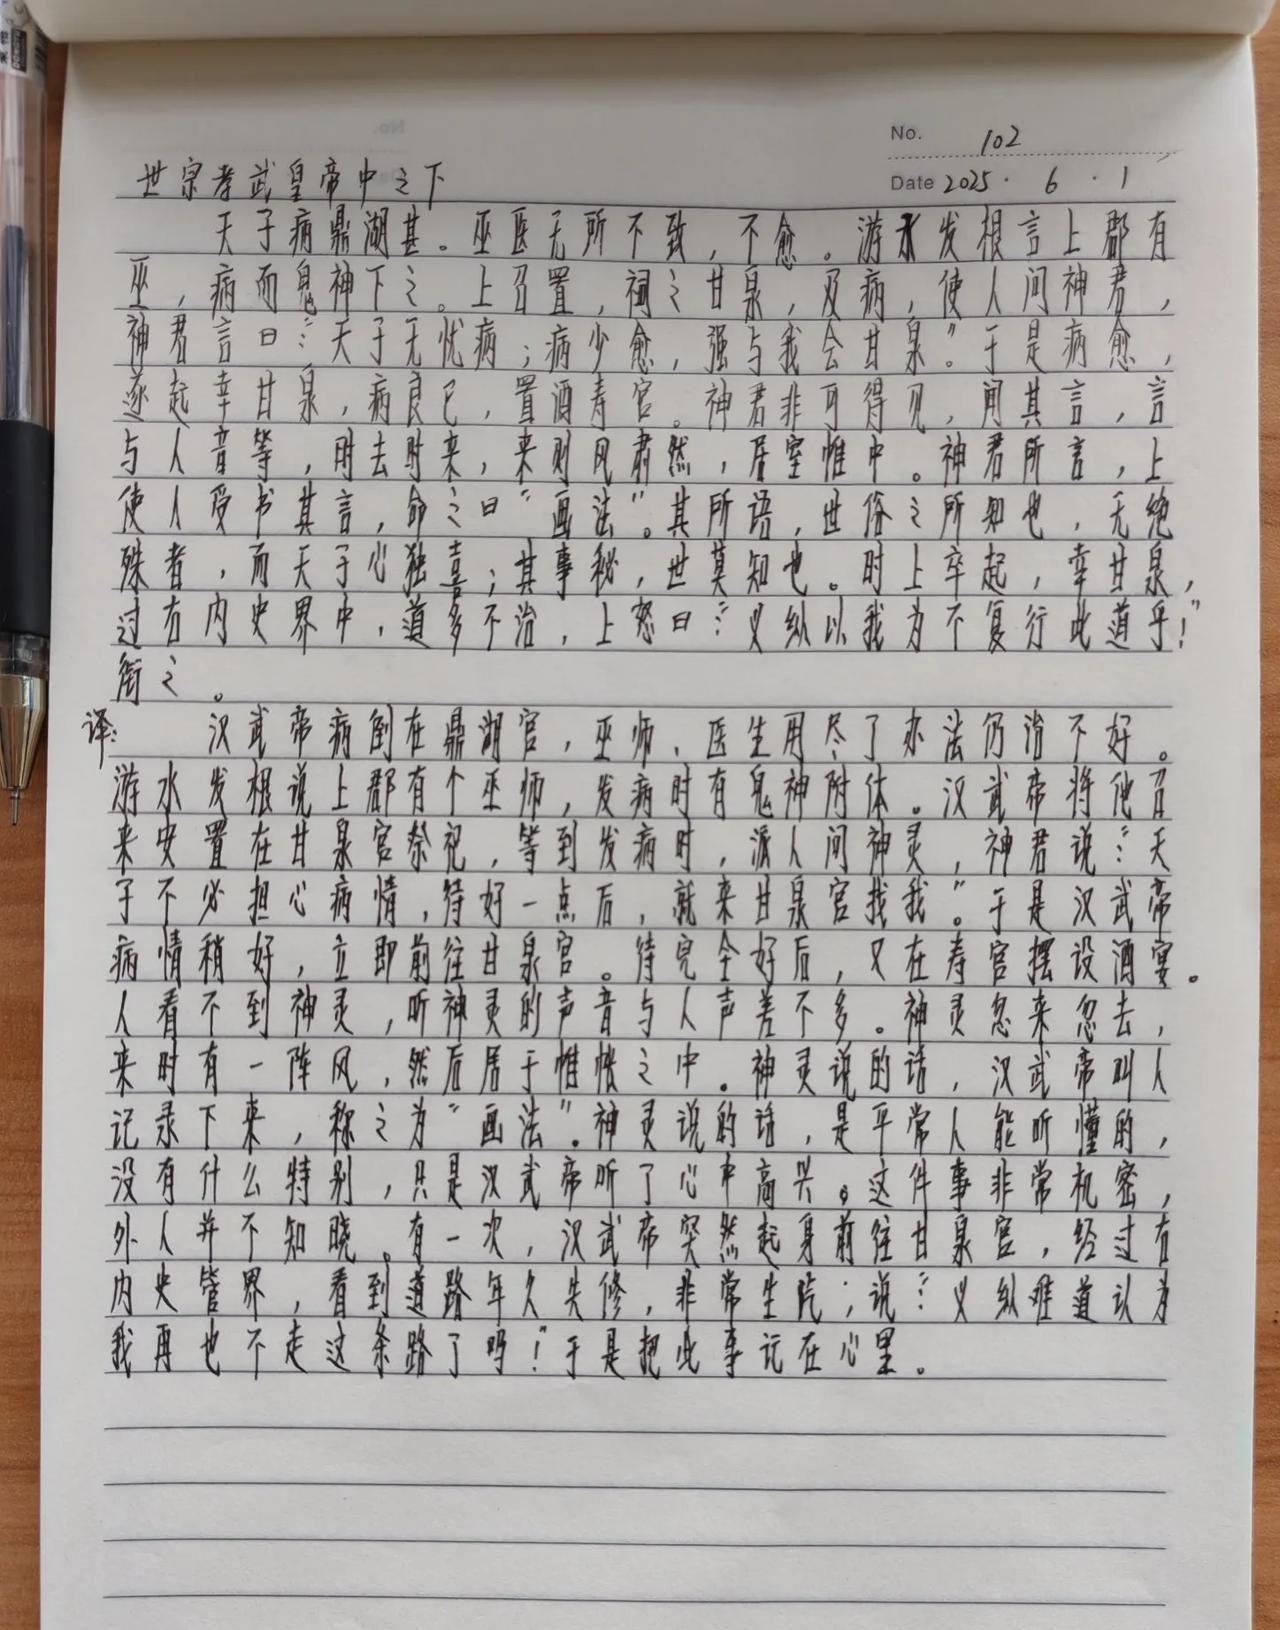 No. 102
世宗孝武皇帝中之下
Date 2025 · 6 · 1
天子病鼎湖甚。巫医无所不致，不愈。游水发根言上郡有
巫，病而鬼神下之。上召置，祠之甘泉，及病，使人问神君，
神君言曰：“天子无忧病；病少愈，强与我会甘泉”。于是病愈，
遂起幸甘泉，病良已，置酒寿宫。神君非可得见，闻其言，言
与人音等，时去时来，来则风肃然，居室帷中。神君所言，上
使人受书其言，命之曰“画法”。其所语，世俗之所知也，无绝
殊者，而天子心独喜；其事秘，世莫知也。时上卒起，幸甘泉，
过右内史界中，道多不治，上怒曰：“义纵以我为不复行此道乎！”
衔之。
译：汉武帝病倒在鼎湖宫，巫师、医生用尽了办法仍治不好。
游水发根说上郡有个巫师，发病时有鬼神附体。汉武帝将他召
来安置在甘泉宫祭祀，等到发病时，派人问神灵，神君说：“天
子不必担心病情，待好一点后，就来甘泉宫找我”。于是汉武帝
病情稍好，立即前往甘泉宫。待完全好后，又在寿宫摆设酒宴。
人看不到神灵，听神灵的声音与人声差不多。神灵忽来忽去，
来时有一阵风，然后居于帷帐之中。神灵说的话，汉武帝叫人
记录下来，称之为“画法”。神灵说的话，是平常人能听懂的，
没有什么特别，只是汉武帝听了心中高兴。这件事非常机密，
外人并不知晓。有一次，汉武帝突然起身前往甘泉宫，经过右
内史管界，看到道路年久失修，非常生气；说：“义纵难道认为
我再也不走这条路了吗！”于是把此事记在心里。